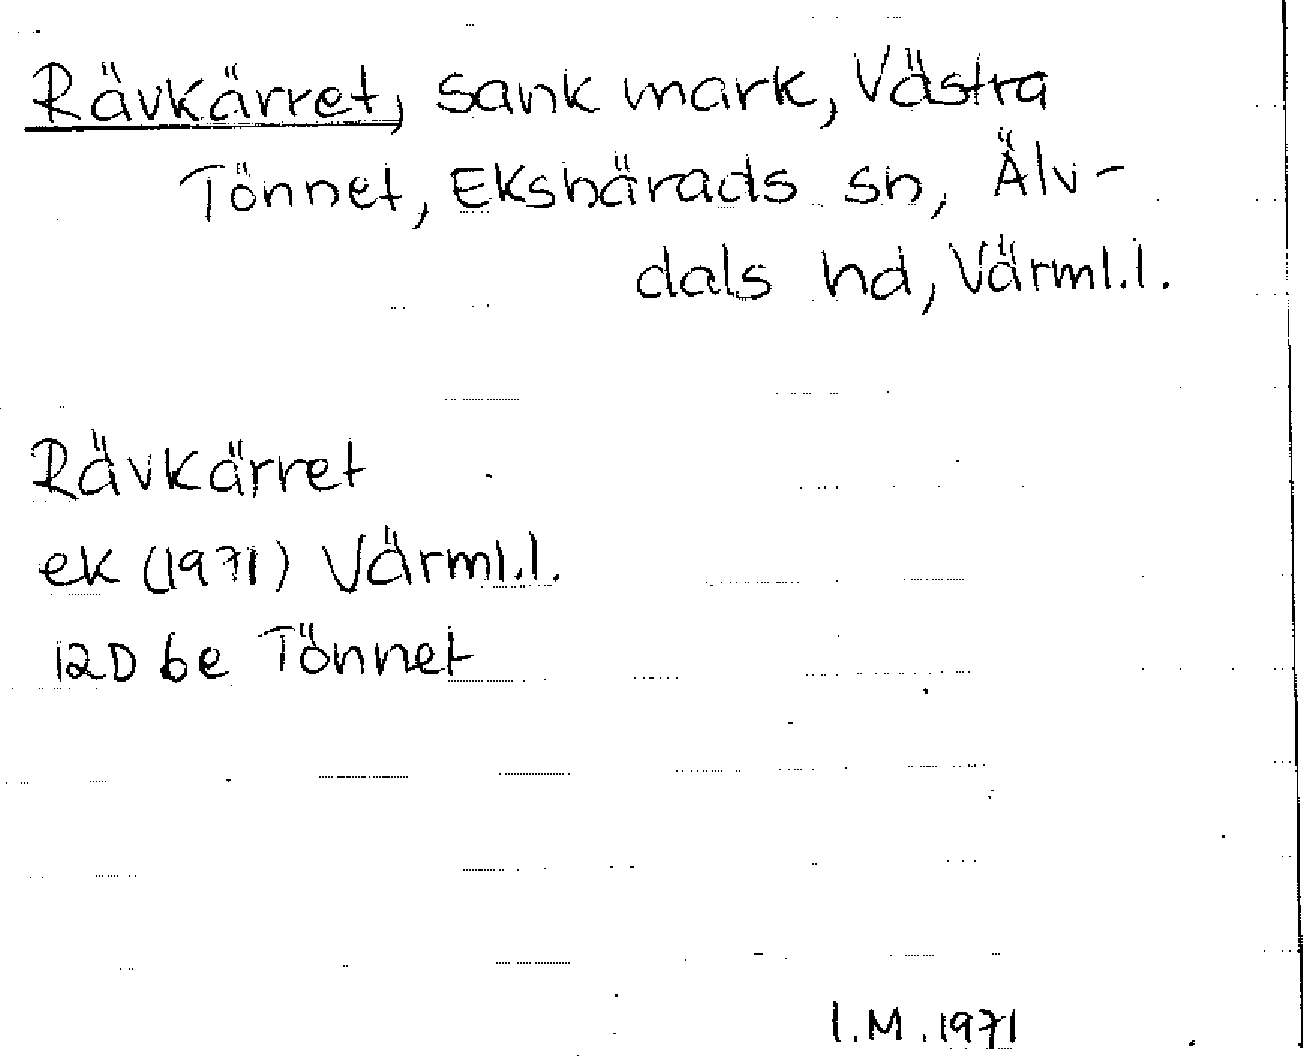 Rävkärret, sank mark, Västra
Tönnet, Ekshärads sn, Älv-
dals hd, Värml.l.
Rävkärret
ek (1971) Värml.l.
12D 6e Tönnet
I.M. 1971